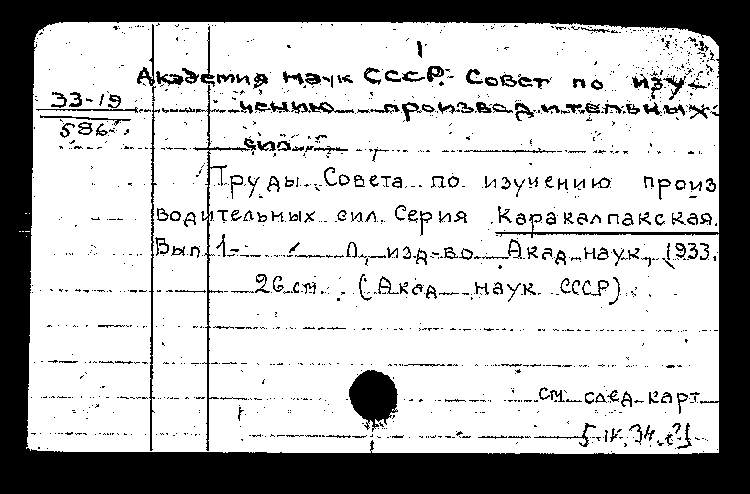 1
Академия наук СССР. Совет по изу-
33-19
чению производительных
586
сил
Труды Совета по изучению произ
водительных сил. Серия Каракалпакская.
Вып. 1- Л., изд-во Акад. наук, 1933.
26 см. (Акад. наук СССР)
см. след. карт
5.IV.34.